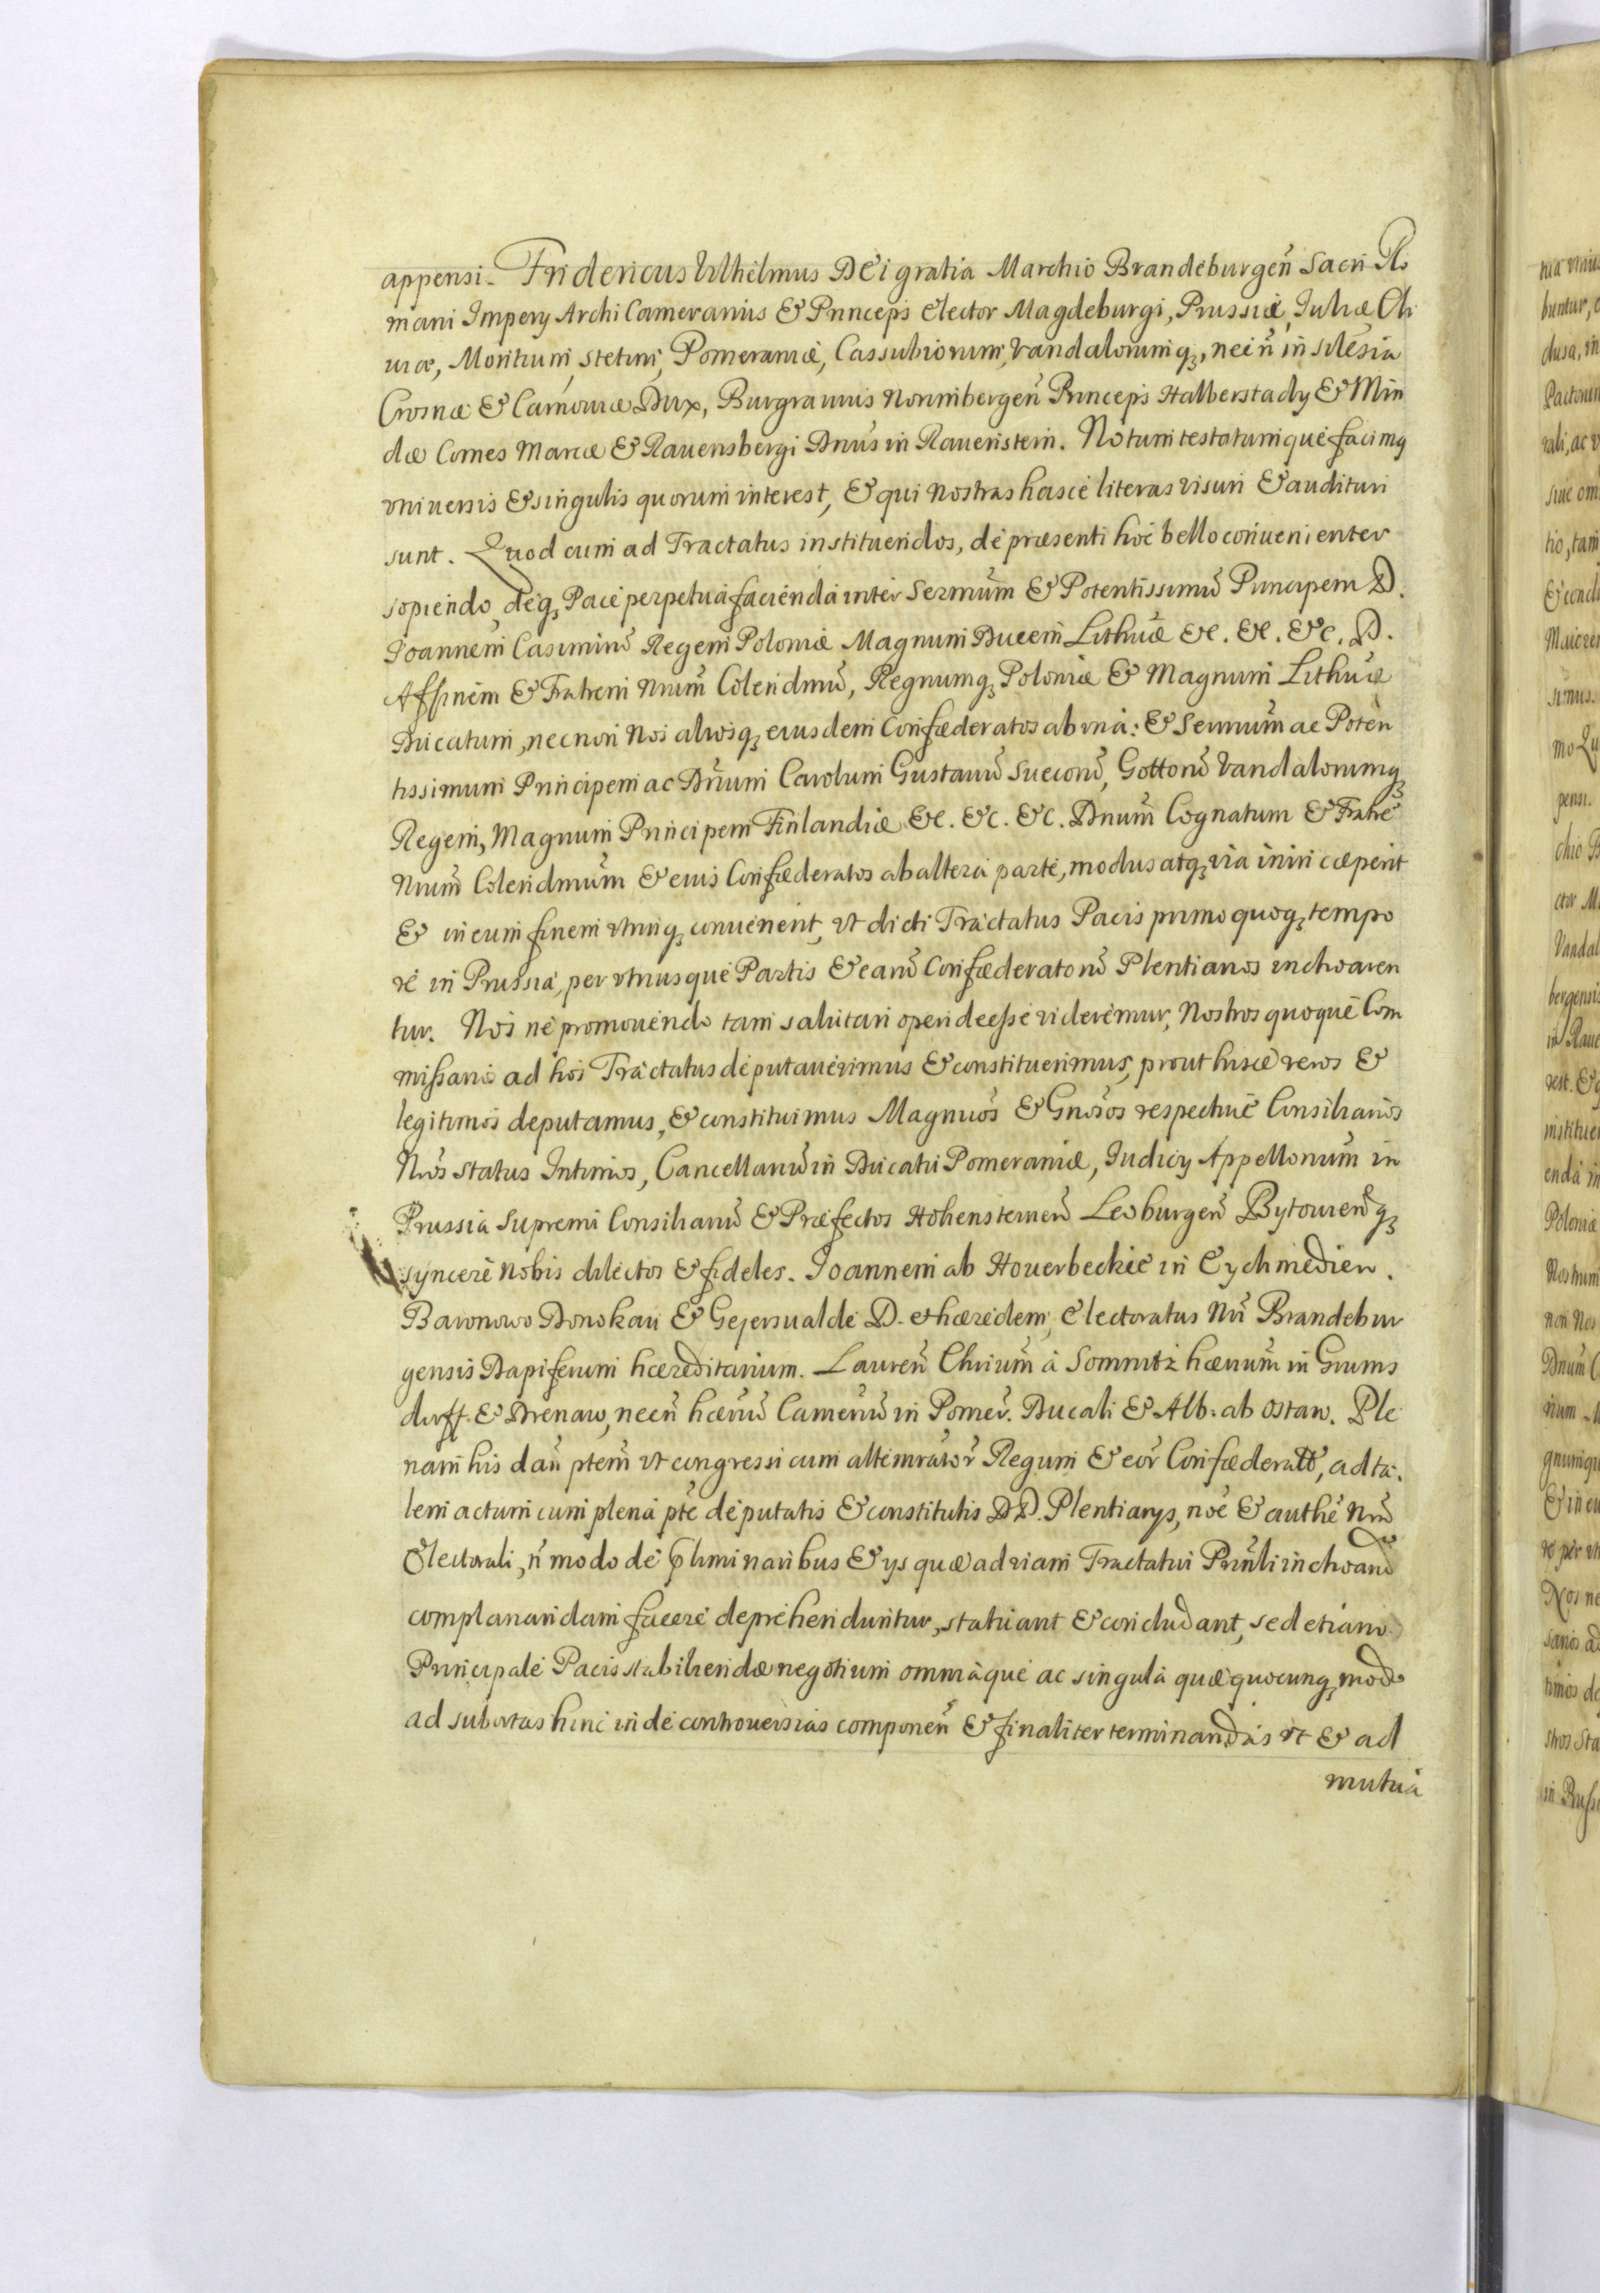 appensi. Fridericus Vilhelmus DEi gratia Marchio Brandeburgen̄ Sacri Ro
mani Impery Archi Camerarius & Princeps Elector Magdeburgi, Prussiæ, Iuliæ Cli
uiæ, Montium, Stetini, Pomeraniæ, Cassubiorum, Vandalorumq3, necn̄ in Silesia
Crosnæ & Carnouiæ Dux, Burgrauius Norimbergen̄ Princeps Halberstady & Min
dæ Comes Marcæ & Rauensbergi Dnūs in Rauenstein. Notum testatumque facimq
vniuersis & singulis quorum interest, & qui Nostras hasce literas visuri & audituri
sunt. Quod cum ad Tractatus instituendos, de præsenti hoc bello conuenienter
sopiendo, deq3 Pace perpetua facienda inter Sermūm & Potentissimū Principem D.
Joannem Casimirū Regem Poloniæ Magnum Ducem Lithuæ &c. &c. &c. D.
Affinem & Fratrem Nrum̄ Colendmū, Regnumq3 Poloniæ & Magnum Lithuæ
Ducatum, necnon Nos aliosq3 eiusdem Confæderatos ab vna: & Sermum̄ ac Poten
tissimum Principem ac Dn̄um Carolum Gustauū Suecorū, Gottorū Vandalorumq3
Regem, Magnum Principem Finlandiæ &c. &c. &c. Dnum̄ Cognatum & Fratrē
Nrum̄ Colendmum̄ & eius Confæderatos ab altera parte, modus atq3 via iniri cæperit
& in eum finem vtrinq3 conuenerit, vt dicti Tractatus Pacis primo quoq3 tempo
re in Prussia, per vtriusque Partis & earū Confæderatorū Plentiarios inchoaren
tur. Nos ne promouendo tam salutari operi deesse videremur, Nostros quoque Com
missarios ad hos Tractatus deputauerimus & constituerimus, prout hisce veros &
legitimos deputamus, & constituimus Magnuos & Gnōsos respectiue Consiliarios
Nrōs Status Intimos, Cancellariū in Ducatu Pomeraniæ, Iudicy Appellonum̄ in
Prussia Supremi Consiliariū & Præfectos Hohensteinen̄ Leoburgen̄ Bytouien̄q3
syncere Nobis dilectos & fideles. Joannem ab Houerbeckie in Eychmedien.
Baronowo Donokau & Gejersualde D. et hæredem, Electoratus Nrī Brandebur
gensis Dapiferum hæreditarium. Lauren̄ Chrium̄ à Somnitz hærium̄ in Grums
dorff. & Drenaw, necn̄ hærūm Camerū in Pomer̄. Ducali & Alb: ab Ostaw. Ple
nam his dan̄ ptem̄ vt congressi cum altemrator̄ Regum & eor̄ Confæderatt, ad ta
lem actum cum plena pt̄e deputatis & constitutis DD. Plentiarys, noē & authē Nrō
Electorali, n̄ modo de p̄liminaribus & ys quæ ad viam Tractatui Prinli inchoandō
complanandam facere deprehenduntur, statuant & concludant, sed etiam
Principale Pacis stabiliendæ negotium omniaque ac singula quæ quocunq3 modo
ad subortas hinc inde controuersias componen̄ & finaliter terminandas vt & ad
mutua